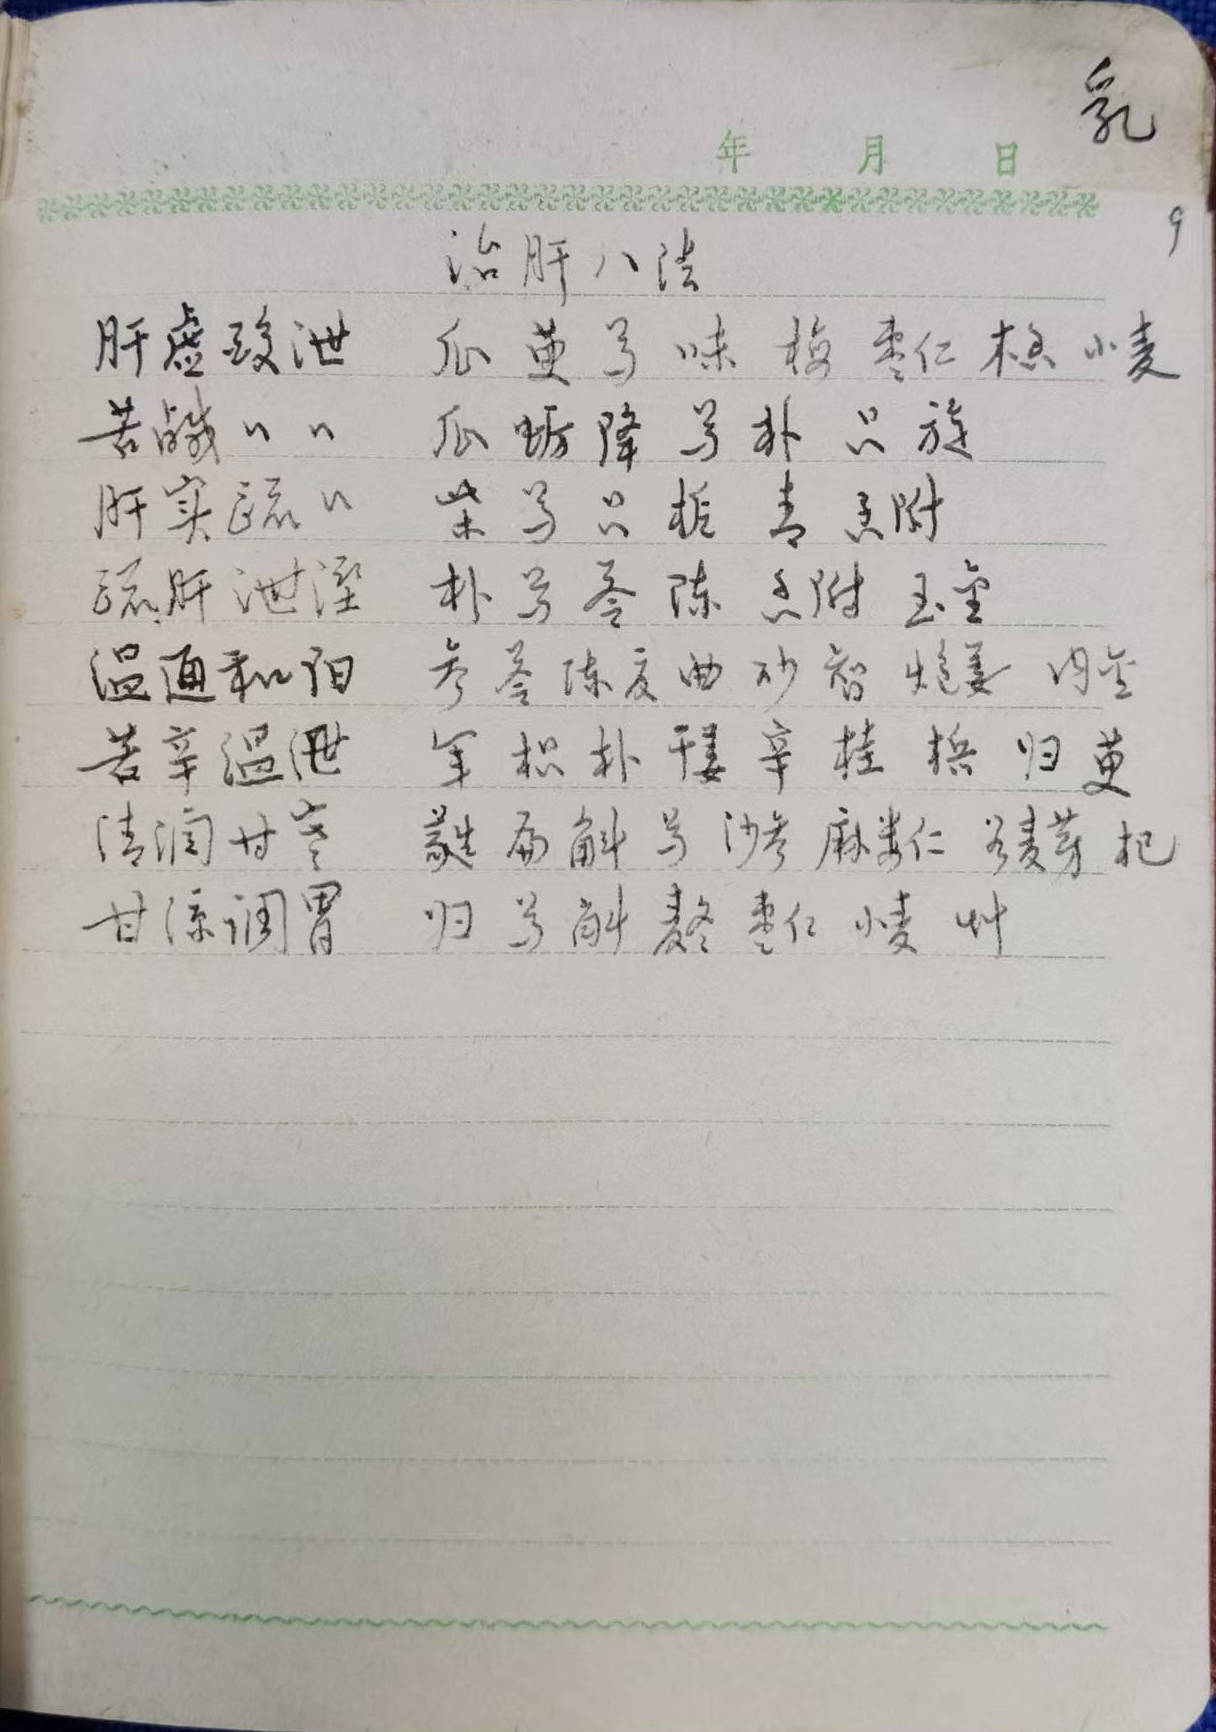 乳
年 月 日
9
治肝八法
肝虚酸泄 瓜 萸 芍 味 梅 枣仁 小麦
苦咸〃〃 瓜 蛎 降 芍 朴 只 旋
肝实疏〃 柴 芍 只 栀 青 香附
疏肝泄湿 朴 芍 苓 陈 香附 玉金
温通和阳 参 苓 陈 夏 曲 砂 智 炮姜 内金
苦辛温泄 军 枳 朴 干姜 辛 桂 槟 归 萸
清润甘寒 扁 斛 芍 沙参 麻 仁 谷麦芽 杞
甘凉调胃 归 芍 斛 麦冬 枣仁 小麦 艸